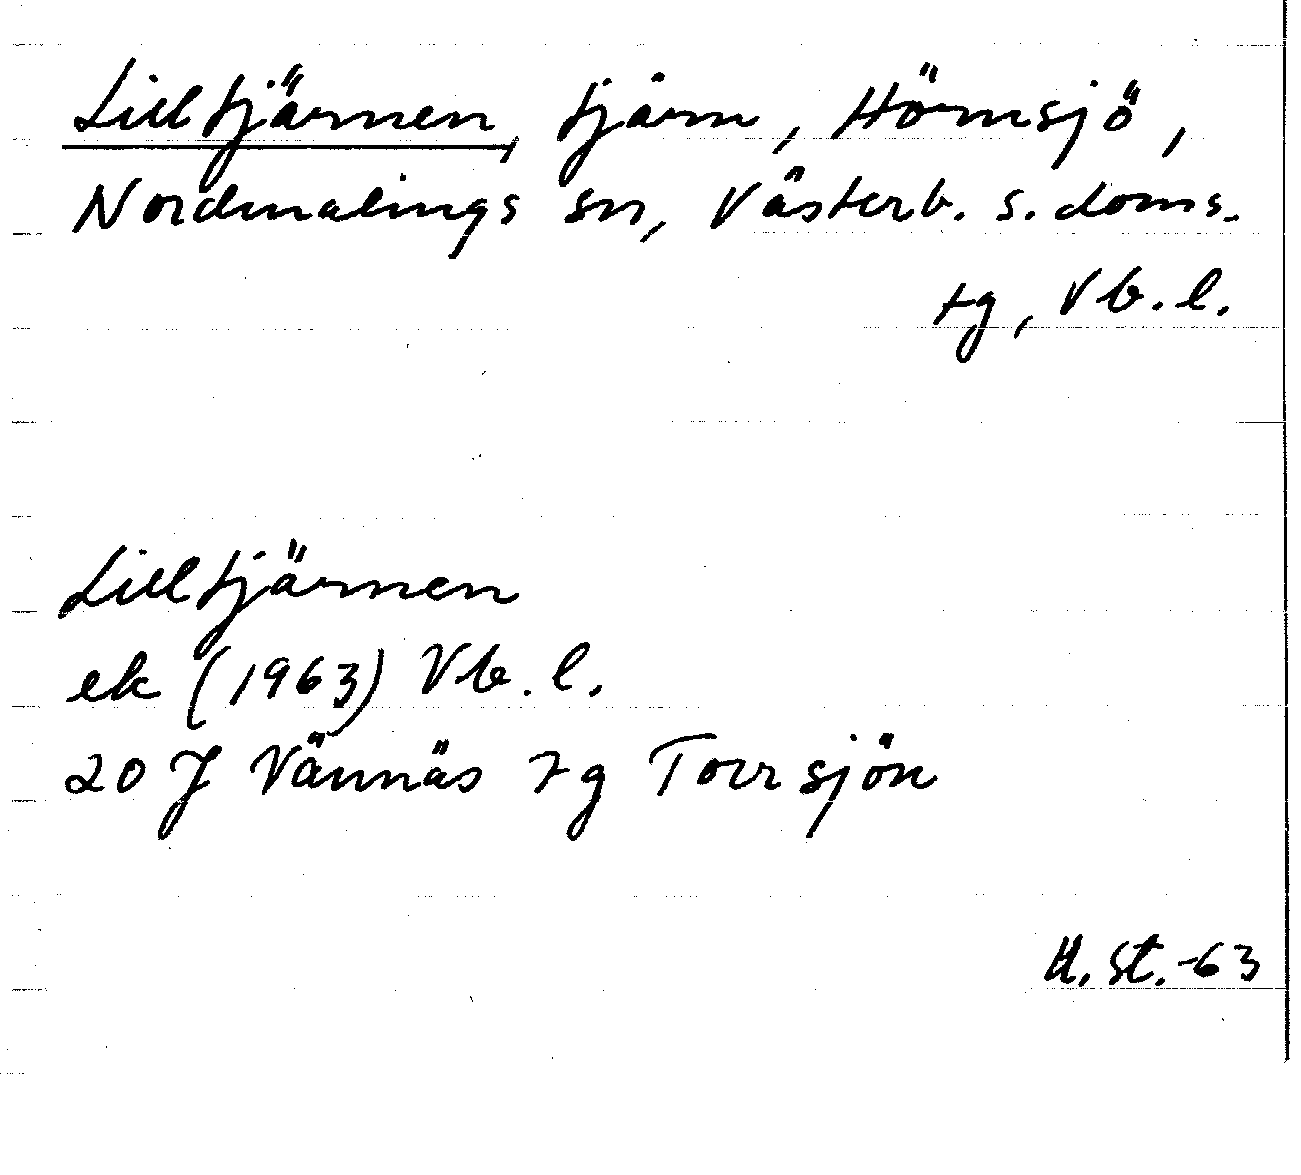 Lilltjärnen, tjärn, Hörnsjö,
Nordmalings sn, Västerb. s. doms.
tg, Vb. l.
Lilltjärnen
ek (1963) Vb. l.
20 J Vännäs tg Torrsjön
H. St. -63